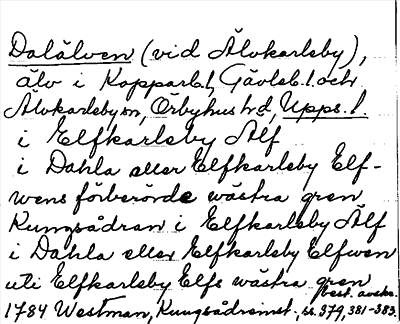 Dalälven (vid Älvkarleby),
älv i Kopparb.l, Gävleb.l. och
Älvkarleby sn, Örbyhus hd, Upps. l.
i Elfkarleby Älf
i Dahla eller Elfkarleby Elf-
wens förberörde wästra gren
Kungsådran i Elfkarleby Älf
i Dahla eller Elfkarleby Elfwen
uti Elfkarleby Elfs wästra gren
1784 Westman, Kungsådreinst., ss. 379, 381-383.